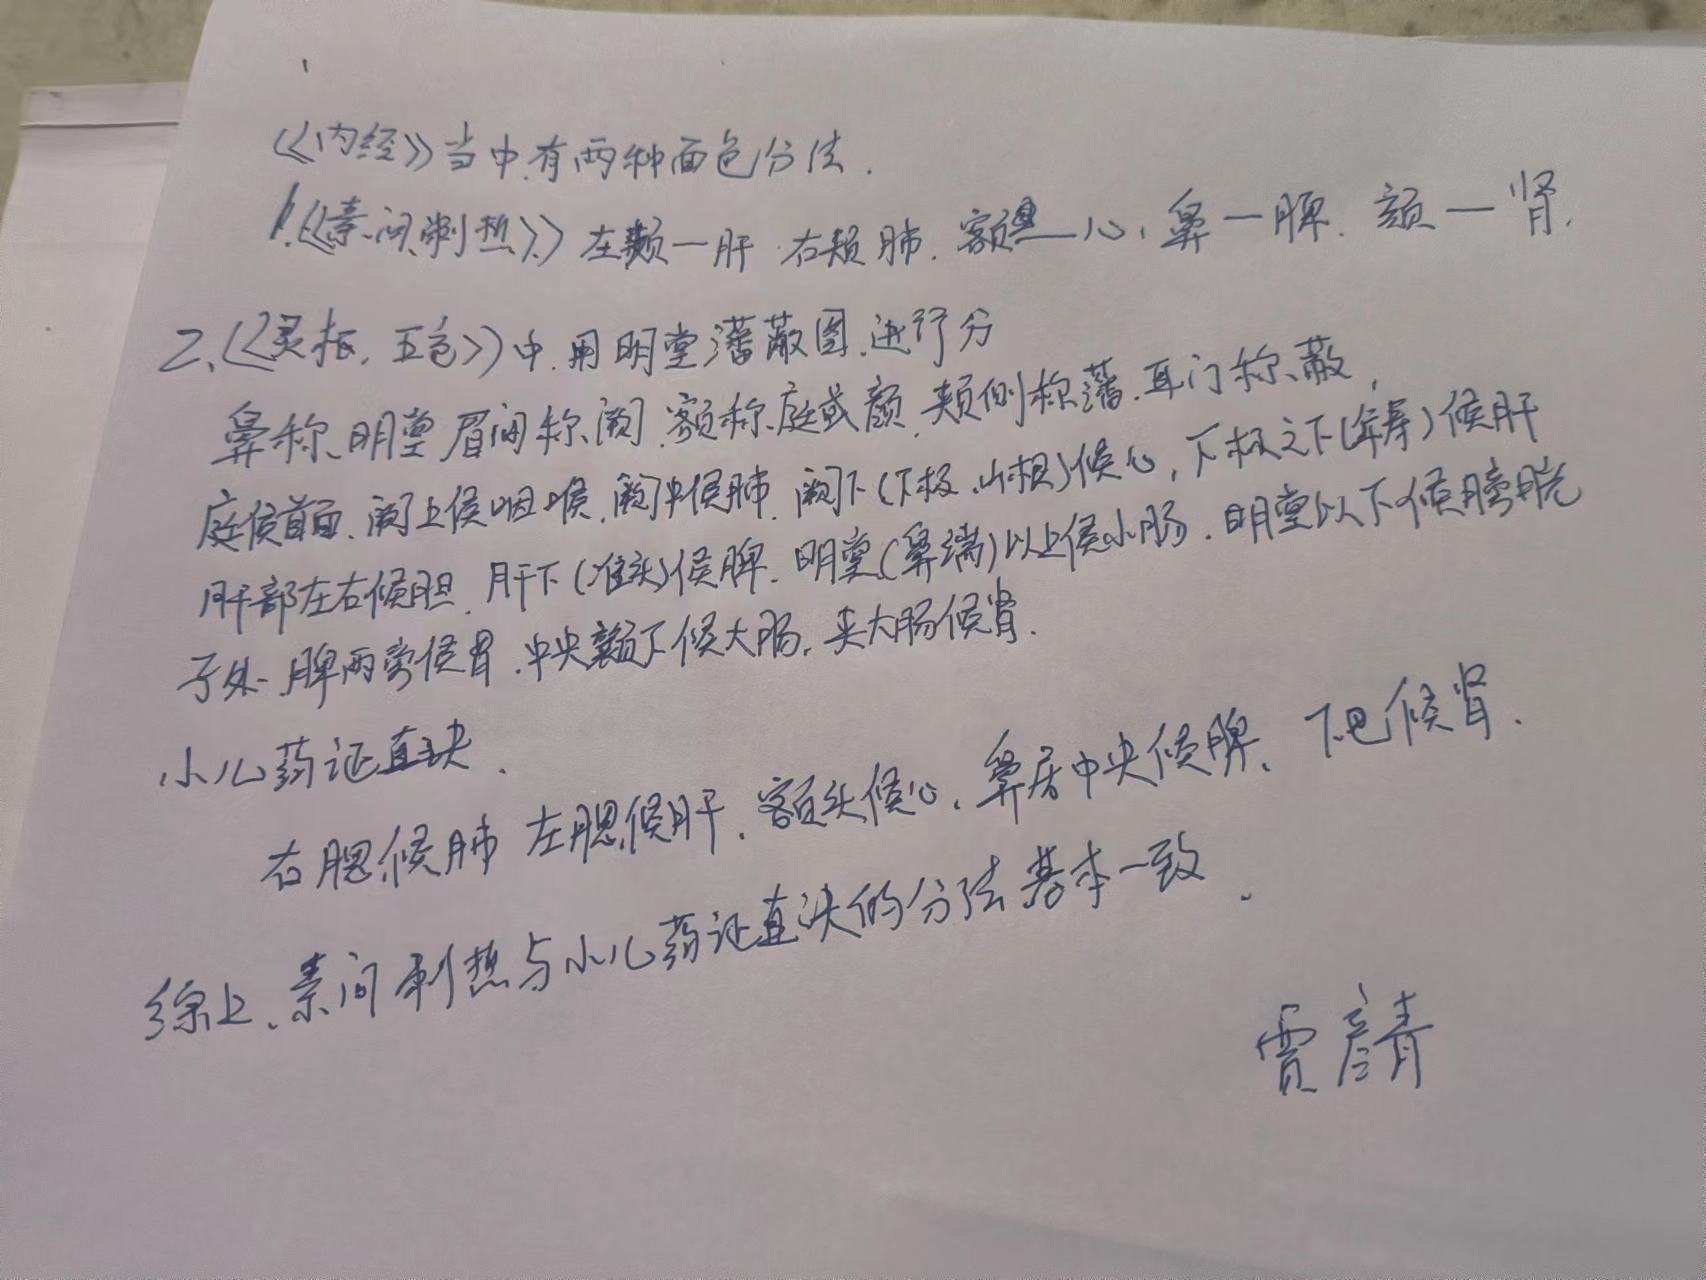 《内经》当中有两种面色分法.
1.《素问.刺热》左颊一肝 右颊肺. 额一心, 鼻一脾. 颏一肾.
2、《灵枢. 五色》中.用明堂藩蔽图.进行分
鼻称.明堂 眉间称阙.额称庭或颜.颊侧称藩.耳门称.蔽,
庭候首面.阙上候咽喉.阙中候肺.阙下(下极.山根)候心,下极之下(年寿)候肝
肝部左右候胆.肝下(准头)候脾.明堂(鼻端)以上候小肠.明堂以下候膀胱
子处.脾两旁候胃.中央颧下候大肠.夹大肠候肾.
小儿药证直决.
右腮候肺 左腮候肝.额头候心.鼻居中央候脾、下巴候肾.
综上、素问刺热与小儿药证直决的分法基本一致.
贾彦青